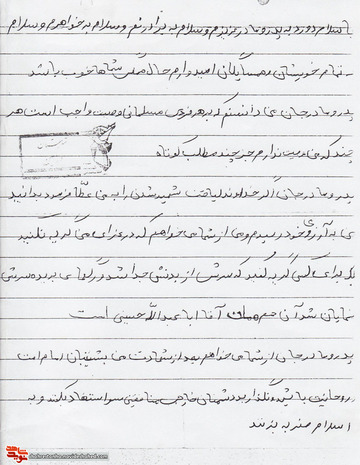 با سلام و درود به پدر و مادر عزیزم و سلام به برادرانم و سلام به خواهرم و سلام
به تمام خویشان و همسایگان امیدوارم حال همگی شماها خوب باشد
پدر و مادر جان می دانستم که بر هر فردی مسلمان وصیت واجب است هر
چند که من وصیت ندارم جز چند مطلب کوتاه
پدر و مادر جان اگر خداوند لیاقت شهید شدن را به من عطا فرمود بدانید
من به آرزوی خود رسیدم و من از شما می خواهم که در عزای من گریه نکنید
بلکه برای کسی گریه کنید که سرش از بدنش جدا شد و رگهای بریده سرش
نمایان شد آن هم آقا ابا عبدالله حسین است
پدر و مادر جان از شما می خواهم بعد از شهادت من پشتیبان امام امت
و روحانیت باشید و نگذارید دشمنان خارجی منافقین سوء استفاده بکنند و به
اسلام ضربه بزنند